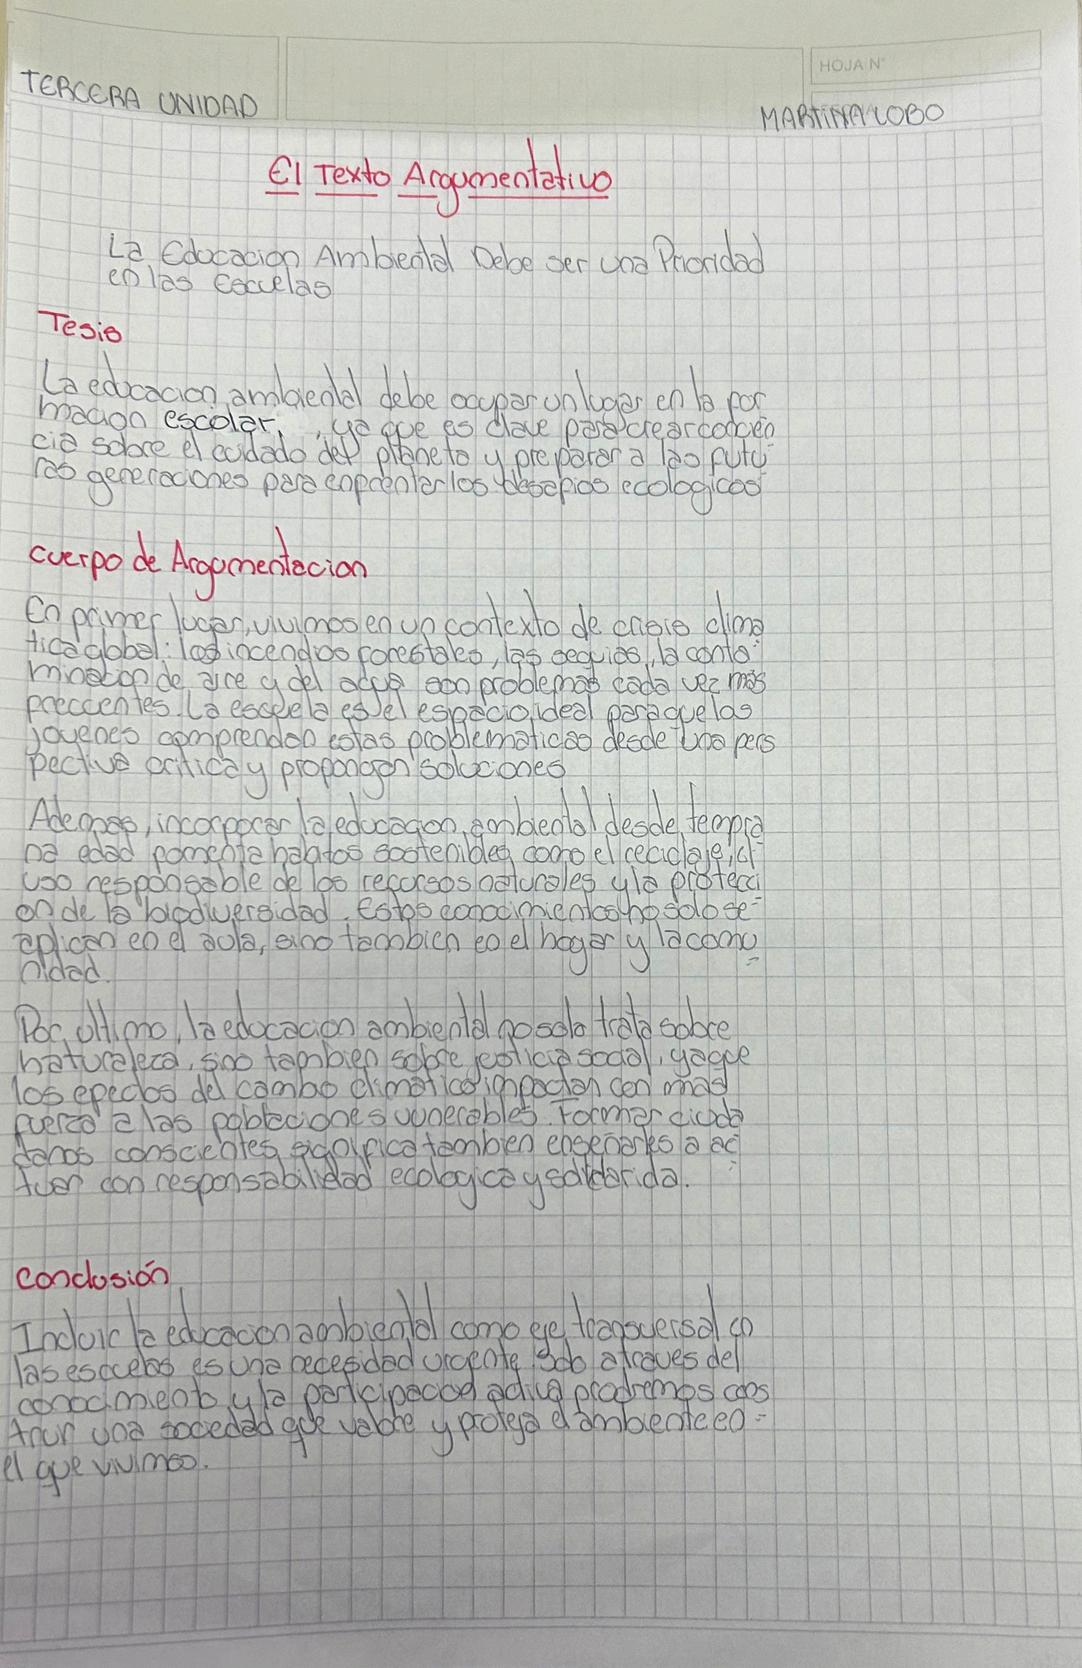 HOJA N°
TERCERA UNIDAD
MARTiNA LOBO
El Texto Argumentativo
La Educacion Ambiental Debe ser una Prioridad
en las Escuelas
Tesis
La educacion ambiental debe ocupar un lugar en la for
macion escolar, , ya que es clave para crear concien
cia sobre el cuidado del planeta y preparar a las futu
ras generaciones para enfrentar los desafios ecologicos
cuerpo de Argumentacion
En primer lugar, vivimos en un contexto de crisis clima
tica global: los incendios forestales, las sequias, la conta-
minacion de aire y del agua son problemas cada vez más
freccentes. La escuela es el espacio ideal para que los
jovenes comprendan estas problematicas desde una pers
pectiva critica y propongan soluciones
Ademas, incorporar la educacion ambiental desde tempra
na edad fomenta habitos sostenibles como el reciclaje, el
uso responsable de los recursos naturales y la protecci
on de la biodiversidad. Estos conocimientos no solo se-
aplican en el aula, sino tambien en el hogar y la comu
nidad.
Por ultimo, la educacion ambiental no solo trata sobre
naturaleza, sino tambien sobre justicia social, ya que
los efectos del cambio climatico impactan con mas
fuerza a las poblaciones vunerables. Formar ciuda
danos conscientes significa tambien enseñarles a ac
tuar con responsabilidad ecologica y solidarida.
conclusión
Incluir la educacion ambiental como eje transversal en
las escuelas es una necesidad urgente. Solo atraves del
conocimiento y la participacion activa prodremos cons
truir una sociedad que valore y proteja el ambiente en-
el que vivimos.